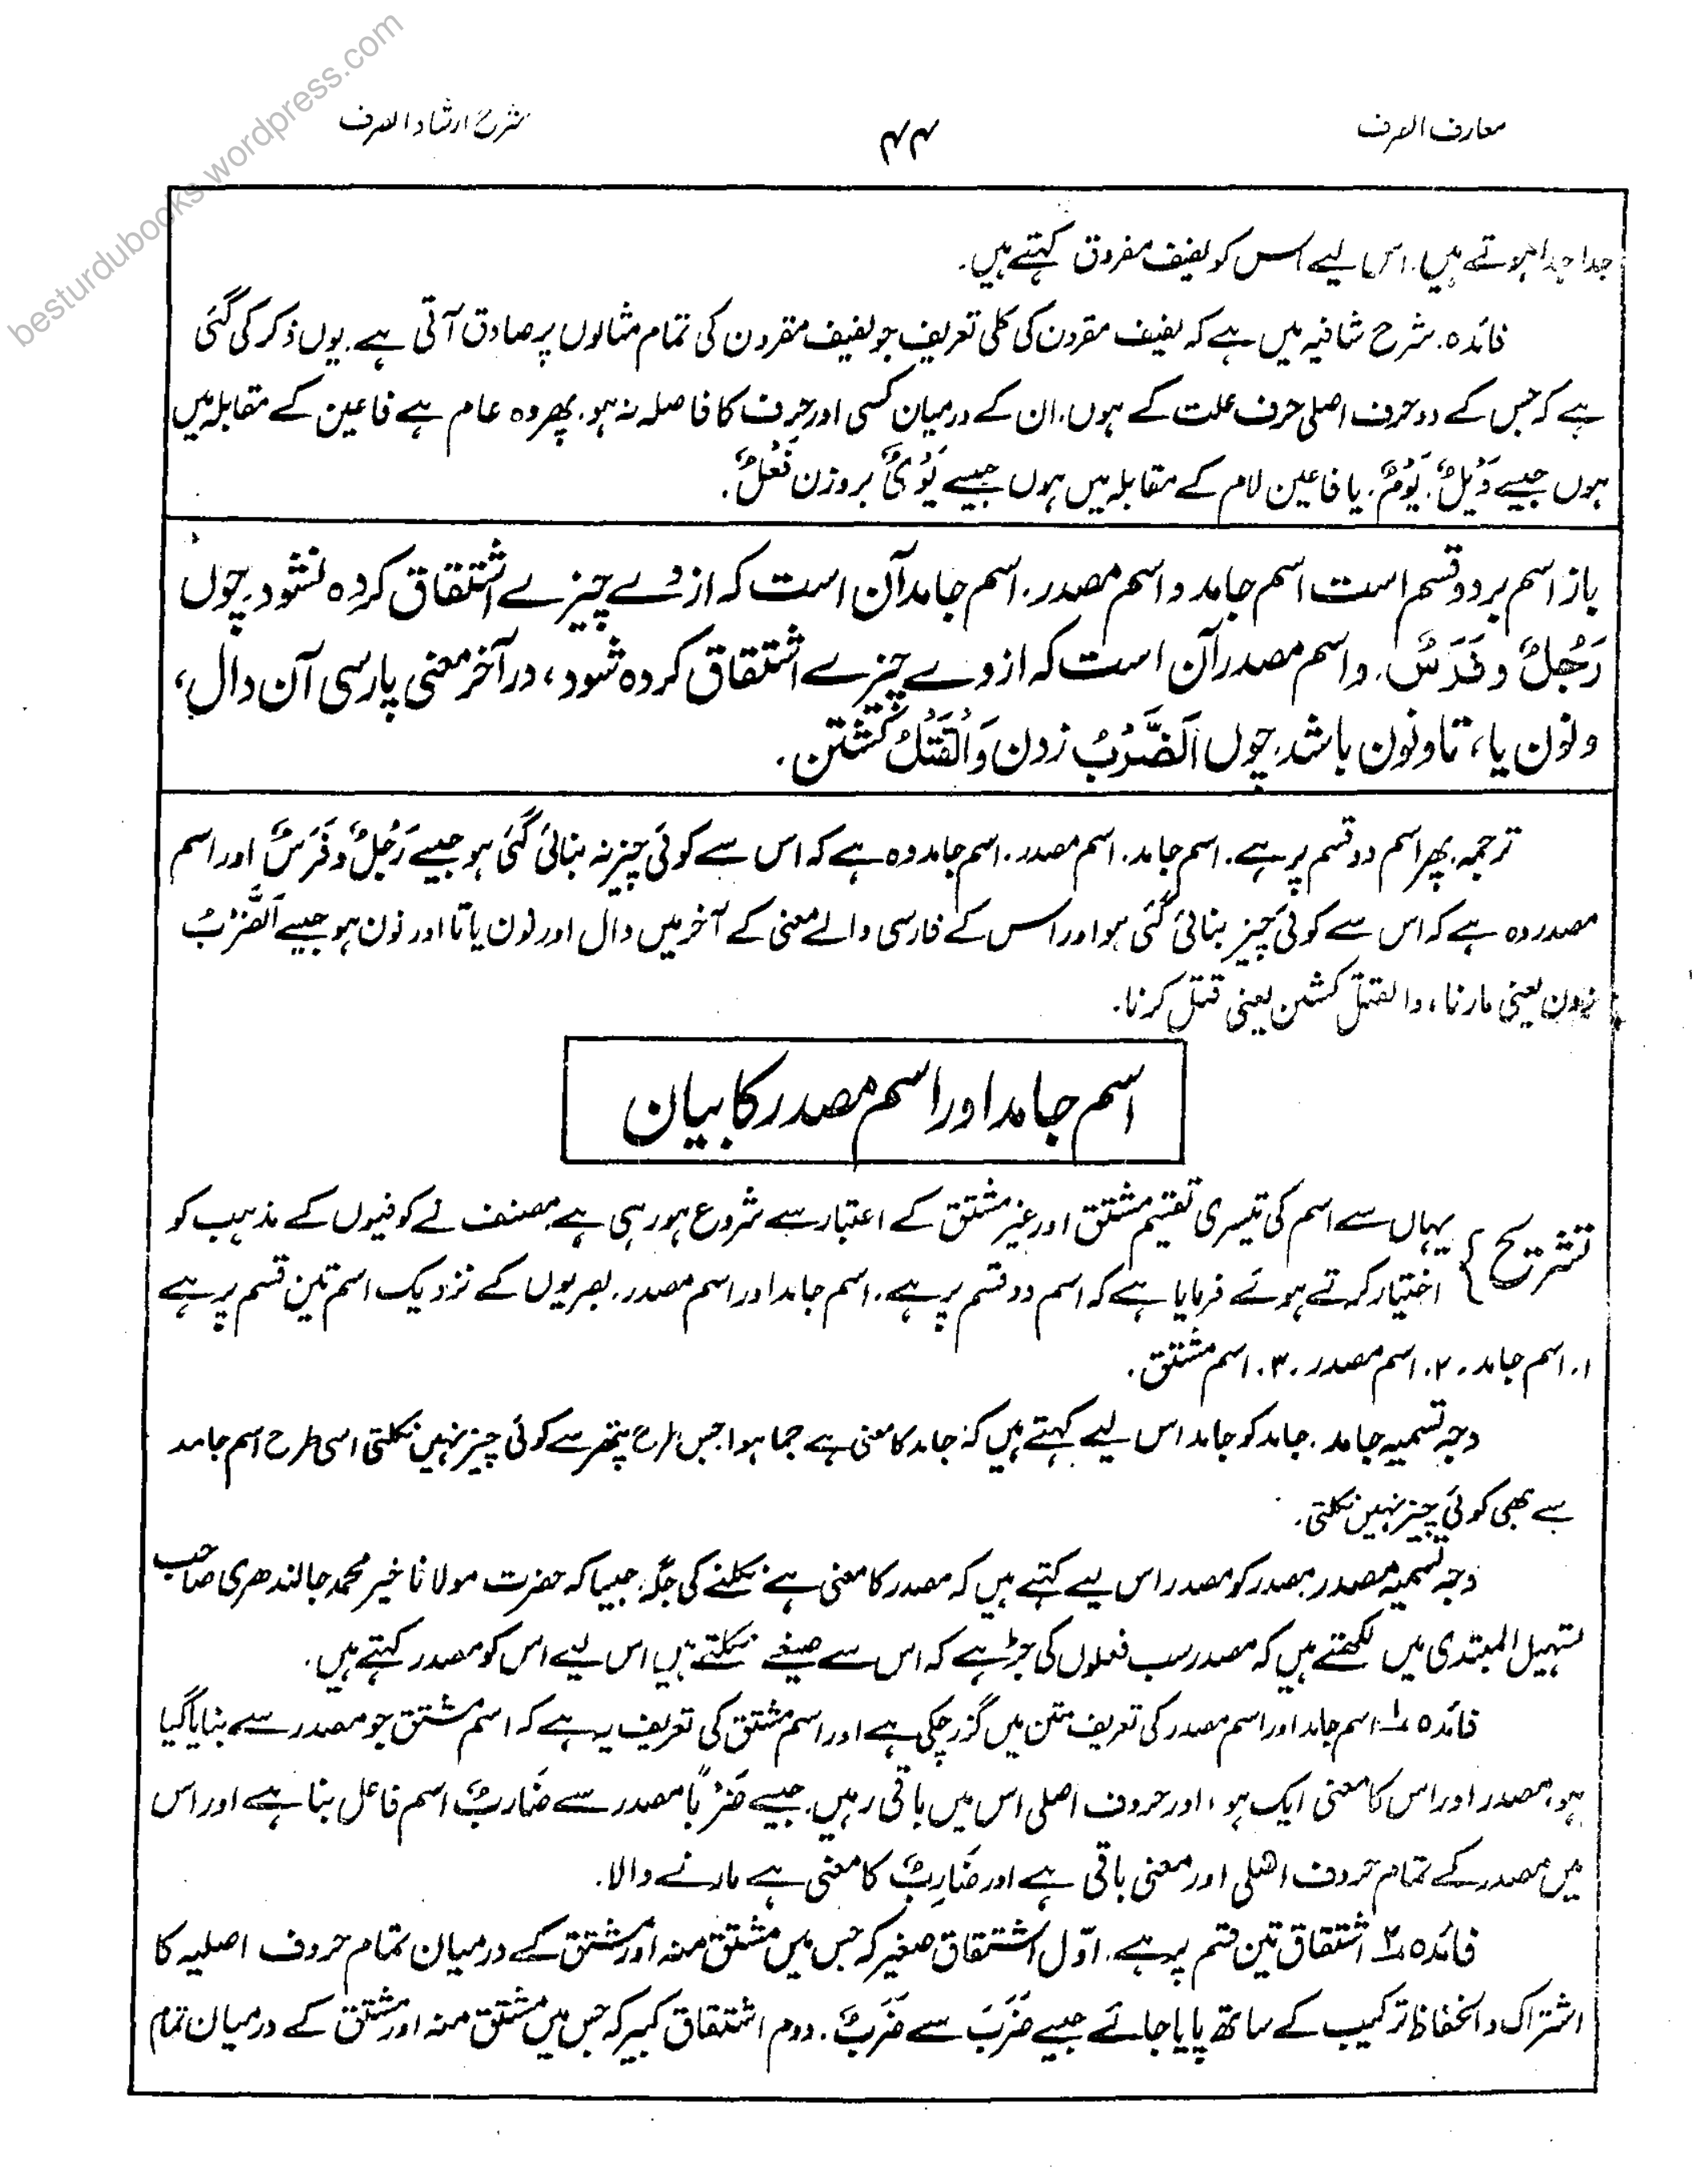 besturdubooks.wordpress.com
معارف الصرف
۴۴
شرح ارشاد الصرف
جدا جدا ہوتے ہیں۔ اس لیے اس کو لفیف مفروق کہتے ہیں۔
فائدہ۔ شرح شافیہ میں ہے کہ لفیف مقرون کی کلی تعریف جو لفیف مقرون کی تمام مثالوں پر صادق آتی ہے۔ یوں ذکر کی گئی
ہے کہ جس کے دو حرف اصلی حرف علت کے ہوں۔ ان کے درمیان کسی اور حرف کا فاصلہ نہ ہو۔ پھر وہ عام ہے فا عین کے مقابلہ میں
ہوں جیسے وَیْلٌ۔ یَوْمٌ۔ یا فا عین لام کے مقابلہ میں ہوں جیسے یَوْیٌ بروزن فَعْلٌ۔
باز اسم بر دو قسم است اسم جامد و اسم مصدر۔ اسم جامد آن است کہ از وے چیزے اشتقاق کردہ نشود۔ چوں
رَجُلٌ و فَرَسٌ۔ و اسم مصدر آن است کہ از وے چیزے اشتقاق کردہ شود، در آخر معنی پارسی آن دال،
و نون یا، تا و نون باشد۔ چوں اَلضَّرْبُ زدن وَالْقَتْلُ کشتن۔
ترجمہ۔ پھر اسم دو قسم پر ہے۔ اسم جامد۔ اسم مصدر۔ اسم جامد وہ ہے کہ اس سے کوئی چیز نہ بنائی گئی ہو جیسے رَجُلٌ و فَرَسٌ اور اسم
مصدر وہ ہے کہ اس سے کوئی چیز بنائی گئی ہو اور اس کے فارسی والے معنی کے آخر میں دال اور نون یا تا اور نون ہو جیسے اَلضَّرْبُ
زدن یعنی مارنا، والقتل کشتن یعنی قتل کرنا۔
اسم جامد اور اسم مصدر کا بیان
تشریح } یہاں سے اسم کی تیسری تقسیم مشتق اور غیر مشتق کے اعتبار سے شروع ہو رہی ہے۔ مصنف نے کوفیوں کے مذہب کو
اختیار کرتے ہوئے فرمایا ہے کہ اسم دو قسم پر ہے۔ اسم جامد اور اسم مصدر۔ بصریوں کے نزدیک اسم تین قسم پر ہے
۱۔ اسم جامد۔ ۲۔ اسم مصدر۔ ۳۔ اسم مشتق۔
وجہ تسمیہ جامد۔ جامد کو جامد اس لیے کہتے ہیں کہ جامد کا معنی ہے جما ہوا۔ جس طرح پتھر سے کوئی چیز نہیں نکلتی اسی طرح اسم جامد
سے بھی کوئی چیز نہیں نکلتی۔
وجہ تسمیہ مصدر۔ مصدر کو مصدر اس لیے کہتے ہیں کہ مصدر کا معنی ہے نکلنے کی جگہ۔ جیسا کہ حضرت مولانا خیر محمد جالندھری صاحب
تسہیل المبتدی میں لکھتے ہیں کہ مصدر سب فعلوں کی جڑ ہے کہ اس سے صیغے نکلتے ہیں اس لیے اس کو مصدر کہتے ہیں۔
فائدہ ۱ اسم جامد اور اسم مصدر کی تعریف متن میں گزر چکی ہے اور اسم مشتق کی تعریف یہ ہے کہ اسم مشتق جو مصدر سے بنایا گیا
ہو، مصدر اور اس کا معنی ایک ہو، اور حروف اصلی اس میں باقی رہیں۔ جیسے ضَرْبًا مصدر سے ضَارِبٌ اسم فاعل بنا ہے اور اس
میں مصدر کے تمام حروف اصلی اور معنی باقی ہے اور ضَارِبٌ کا معنی ہے مارنے والا۔
فائدہ ۲ اشتقاق تین قسم پر ہے۔ اوّل اشتقاق صغیر کہ جس میں مشتق منہ اور مشتق کے درمیان تمام حروف اصلیہ کا
اشتراک و انحفاظ ترکیب کے ساتھ پایا جائے جیسے ضَرَبَ سے ضَرْبٌ۔ دوم اشتقاق کبیر کہ جس میں مشتق منہ اور مشتق کے درمیان تمام